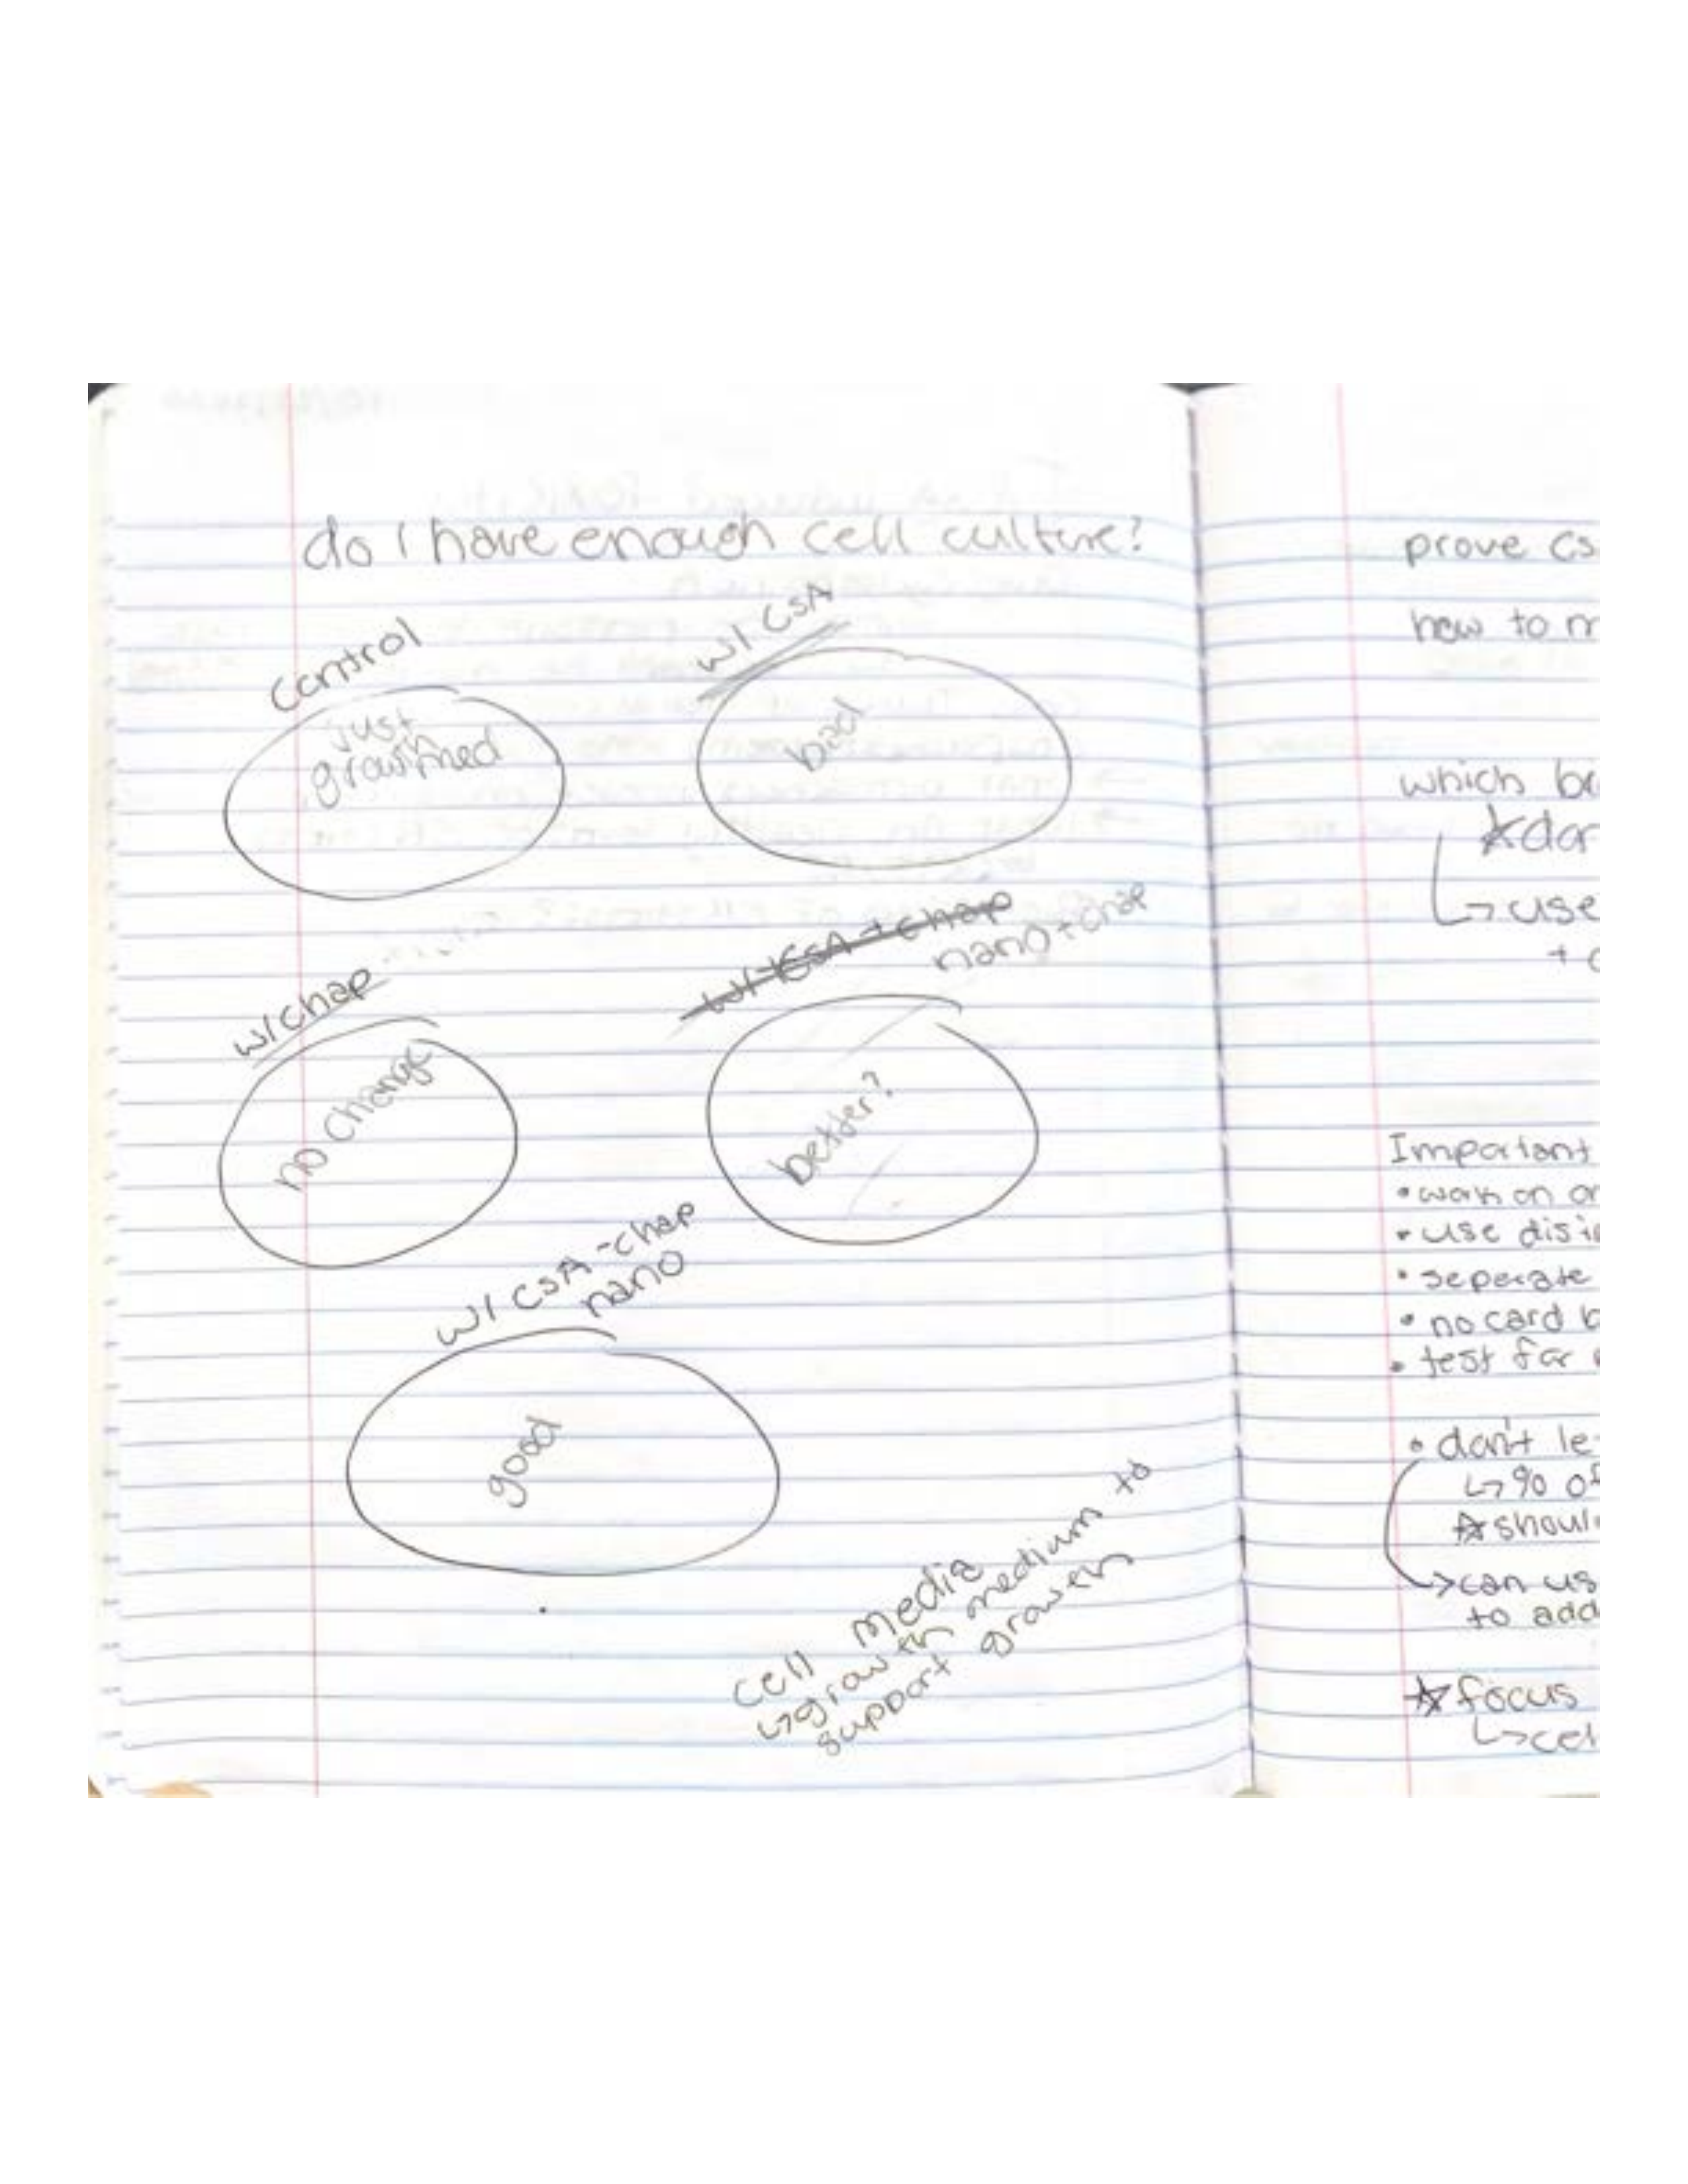 do I have enough cell culture?
control
just
growth med
w/ CsA
bad
w/ chap
no change
w/ CsA + chap
nano + chap
better?
w/ CsA-chap
nano
good
cell media
↳ growth medium to
support growth
prove Cs
how to m
which br
☆ dor
↳ use
+ c
Important
• work on or
• use disi
• seperate
• no card b
• test for
• don't le
↳ % of
☆ shoul
↳ can us
to add
☆ focus
↳ cel